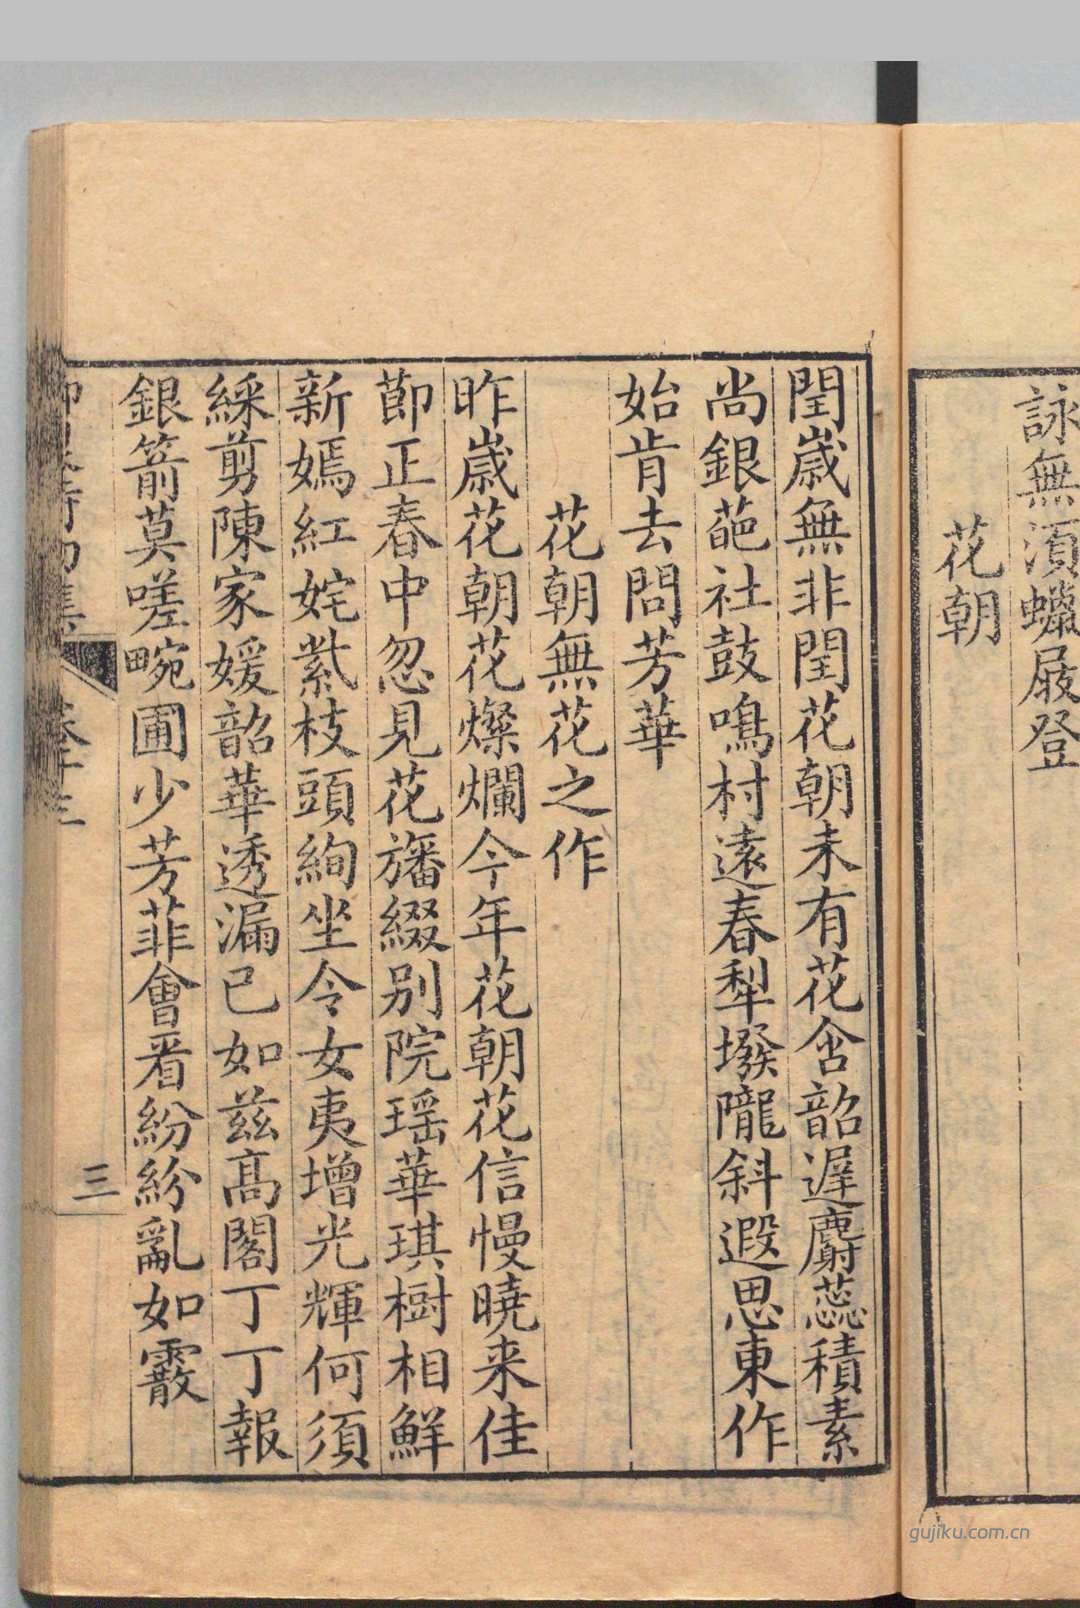 詠無須蠟屐登
花朝
閏歳無非閏花朝未有花含韶遲麝蕊積素
尚銀葩社鼓鳴村遠春犁墢隴斜遐思東作
始肯去問芳華
花朝無花之作
昨歳花朝花燦爛今年花朝花信慢曉来佳
節正春中忽見花旛綴別院瑶華琪樹相鮮
新嫣紅姹紫枝頭絢坐令女夷增光輝何須
綵剪陳家媛韶華透漏已如兹髙閣丁丁報
銀箭莫嗟畹圃少芳菲會看紛紛亂如霰
卷十三
三
gujiku.com.cn